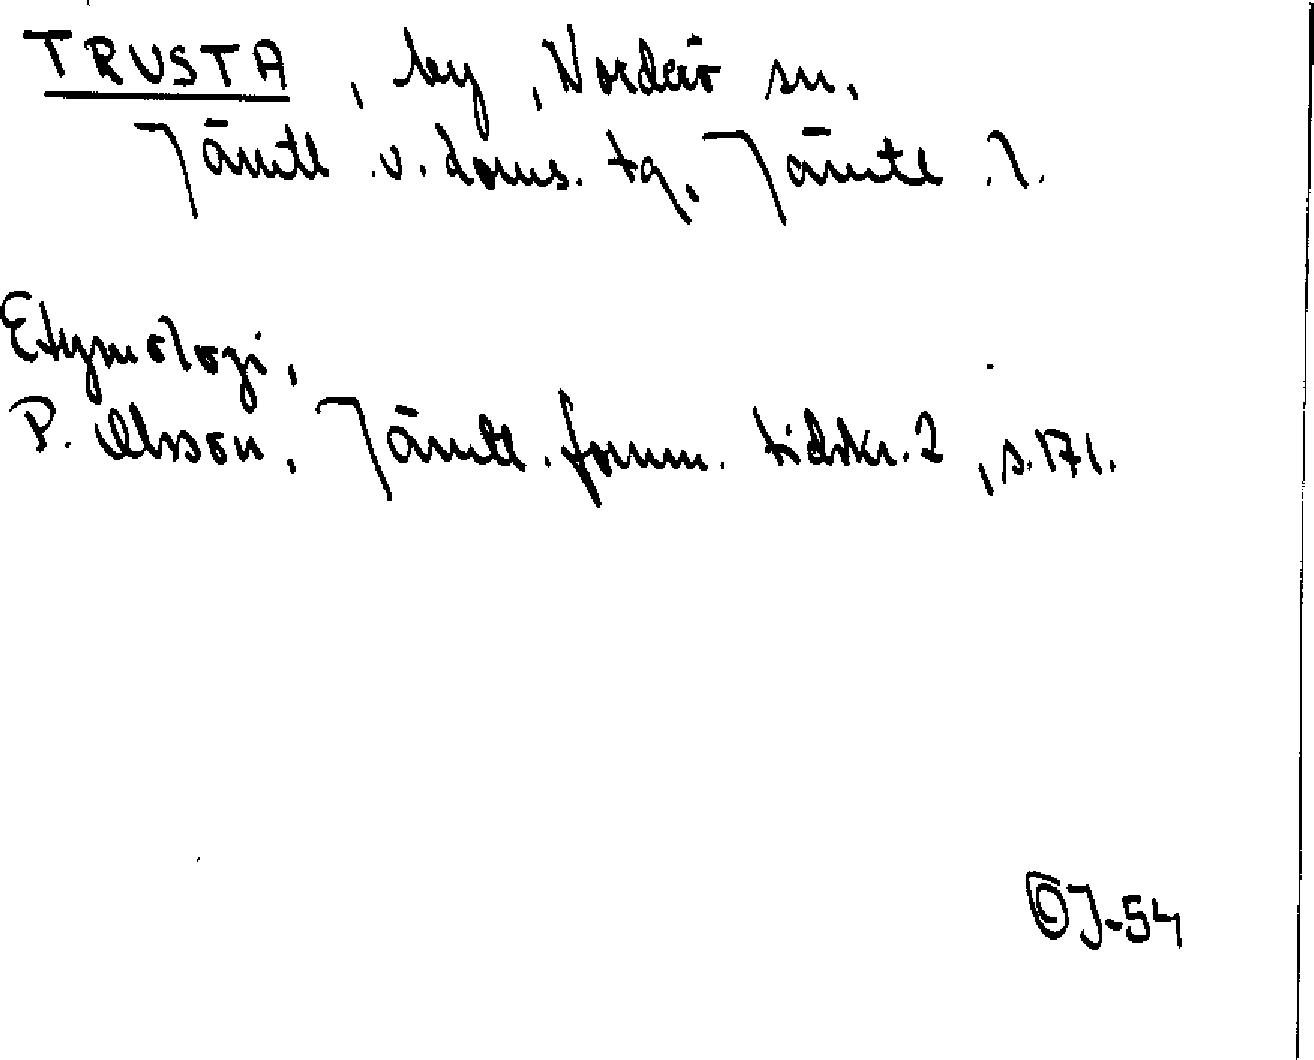 TRUSTA, by, Norderö sn.
Jämtl. v. doms. tg. Jämtl. l.
Etymologi,
P. Olsson, Jämtl. fornm. tidskr. 2, s. 171.
J-54